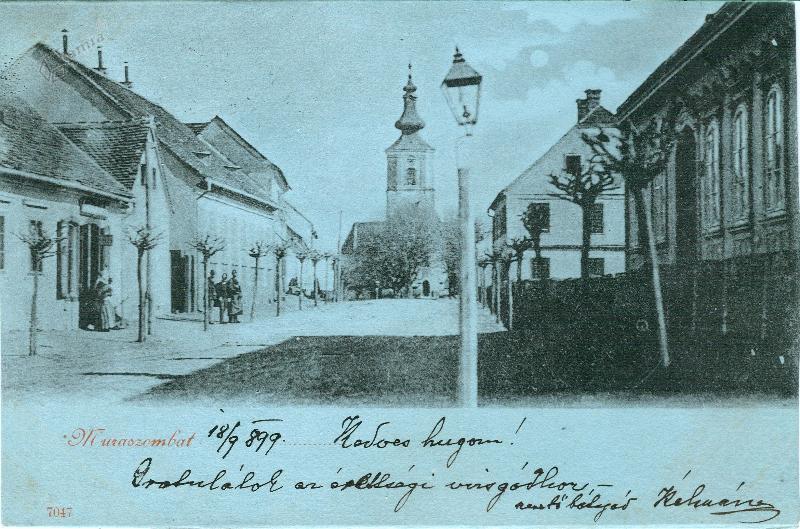 Muraszombat 18/9 899. Kedves hugom!
Gratulálok az érettségi vizsgádhoz –
szerető bátyád Kálmán
7047